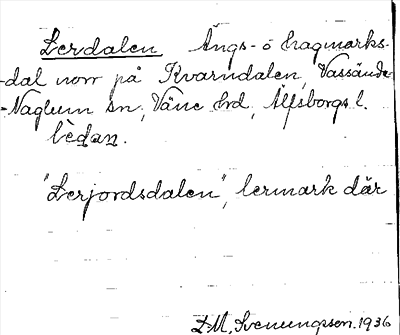 Lerdalen Ängs- o hagmarks-
-dal norr på Kvarndalen, Vassända-
-Naglum sn, Väne hd, Älfsborgs l.
lèdan.
"Lerjordsdalen", lermark där
L. M. Svenungsson. 1936